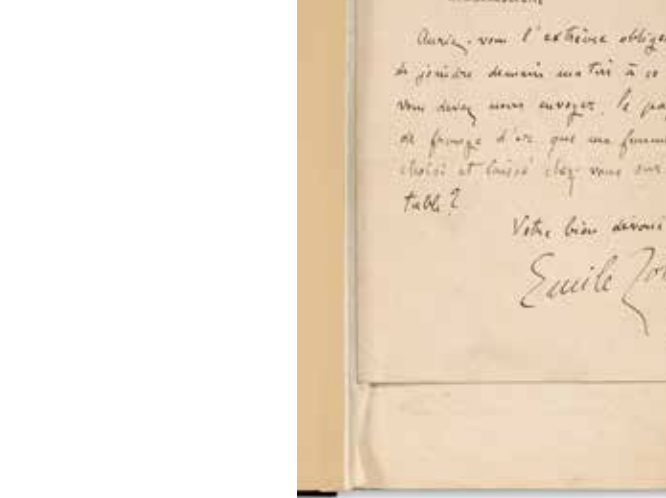 Auriez-vous l'extrême oblige
de joindre demain matin à ce
vous devez nous envoyer, le pa
de frange d'or que ma femme
choisi et laissé chez vous sur
table ?
Votre bien dévoué
Emile Zo